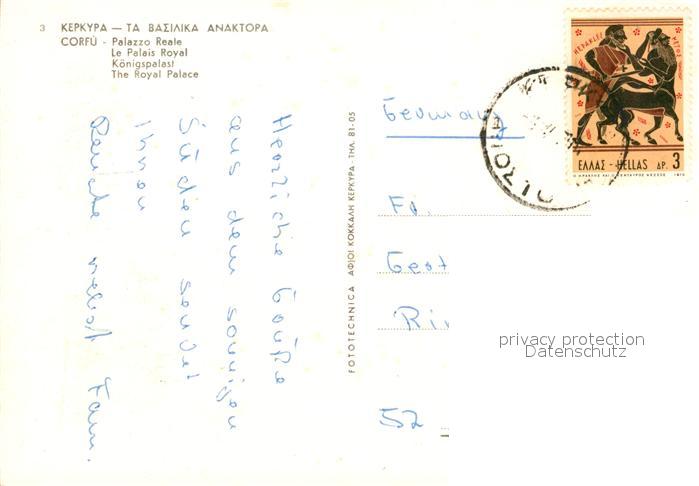 3 ΚΕΡΚΥΡΑ — ΤΑ ΒΑΣΙΛΙΚΑ ΑΝΑΚΤΟΡΑ
CORFÙ - Palazzo Reale
Le Palais Royal
Königspalast
The Royal Palace
Herzliche Grüße
aus dem sonnigen
Süden sendet
Ihnen
nebst Fam.
FOTOTECHNICA ΑΦΙΟΙ ΚΟΚΚΑΛΗ ΚΕΡΚΥΡΑ · ΤΗΛ. 81-05
ΕΛΛΑΣ - HELLAS ΔΡ. 3
Germany
Fa.
Gest
Ri
52
privacy protection
Datenschutz